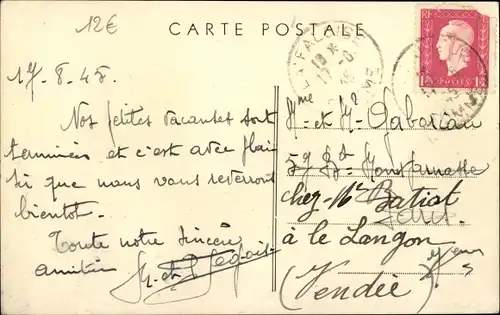 12€
CARTE POSTALE
17.8.45.
Nos petites vacances sont
terminées et c'est avec plaisir
que nous vous reverrons
bientôt.
Toute notre sincère
amitié
M. et
RF
POSTES
M. et Mme Gaboriau
57 Bd Montparnasse
Paris
chez Mr Batiot
à le Langon
(Vendée)